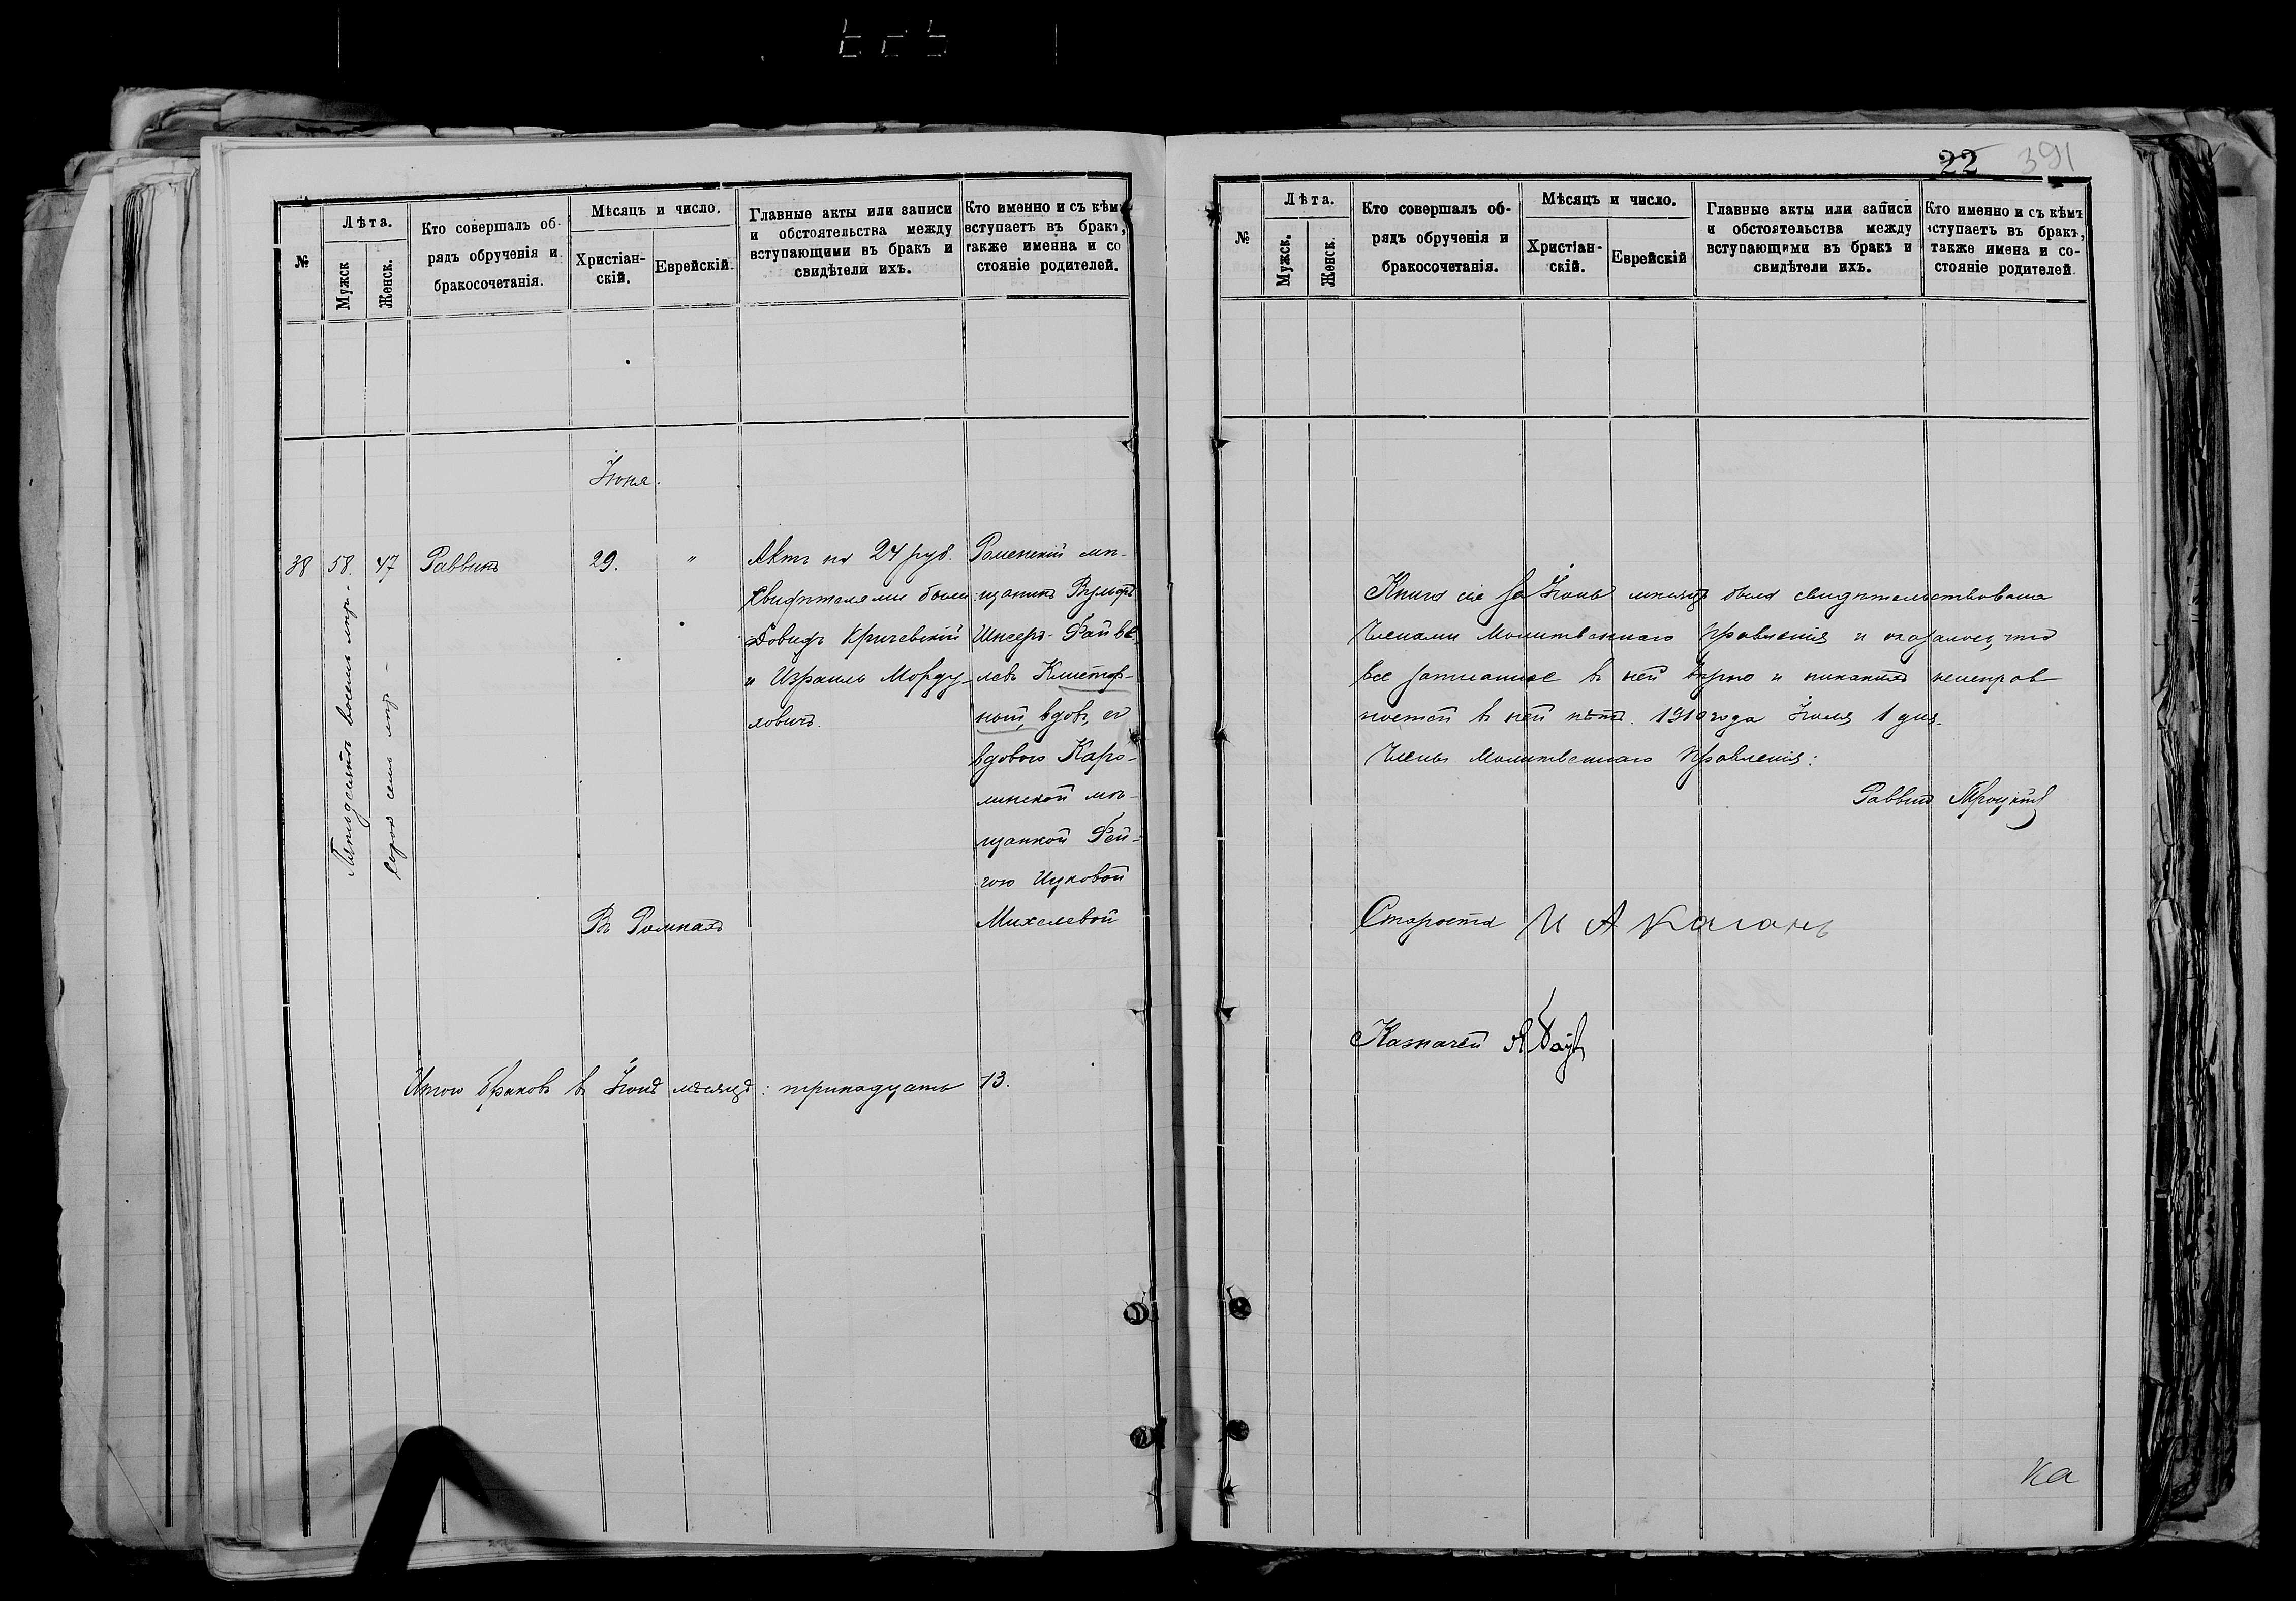 №
Лѣта.
Мужск
Женск.
Кто совершалъ об-
рядъ обрученія и
бракосочетанія.
Мѣсяцъ и число.
Христіан-
скій.
Еврейскій.
Главные акты или записи
и обстоятельства между
вступающими въ бракъ и
свидѣтели ихъ.
Кто именно и съ кѣмъ
вступаетъ въ бракъ,
также именна и со
стояніе родителей.
Іюня.
38
58.
47
Пятьдесятъ восемь лѣтъ-
сорок семь лѣтъ -
Раввинъ
29.
"
Актъ на 24 руб.
Свидѣтелями были:
Довидъ Кричевскій
и ИзраильМорду-
ховичъ.
Роменскій мѣ-
щанинъ Вульфъ
Шнееръ-Файве-
левъ
ный, вдов, съ
вдовою Каро-
линской мѣ-
щанкой Фей-
гою Ицковой
Михелевой
Въ Ромнахъ
Итого браковъ въ Іюнѣ мѣсяцѣ: тринадцать 13.
22 391
№
Лѣта.
Мужск.
Женск.
Кто совершалъ об-
рядъ обрученія и
бракосочетанія.
Мѣсяцъ и число.
Христіан-
скій.
Еврейскій
Главные акты или записи
и обстоятельства между
вступающими въ бракъ и
свидѣтели ихъ.
Кто именно и съ кѣмъ
вступаетъ въ бракъ,
также имена и со-
стояніе родителей.
Книга сія за Іюнь мѣсяцъ была свидѣтельствована
Членами Молитвеннаго Правленія и оказалось, что
все записанное въ ней вѣрно и никакихъ неисправ
ностей въ ней нѣтъ. 1910 года Іюля 1 дня.
Члены Молитвеннаго Правленія:
Раввинъ Троцкій
Староста И А Каганъ
Казначей
Ка